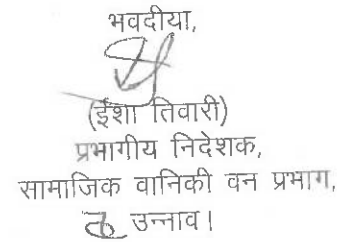 भवदीया,
(ईशा तिवारी)
प्रभागीय निदेशक,
सामाजिक वानिकी वन प्रभाग,
उन्नाव।